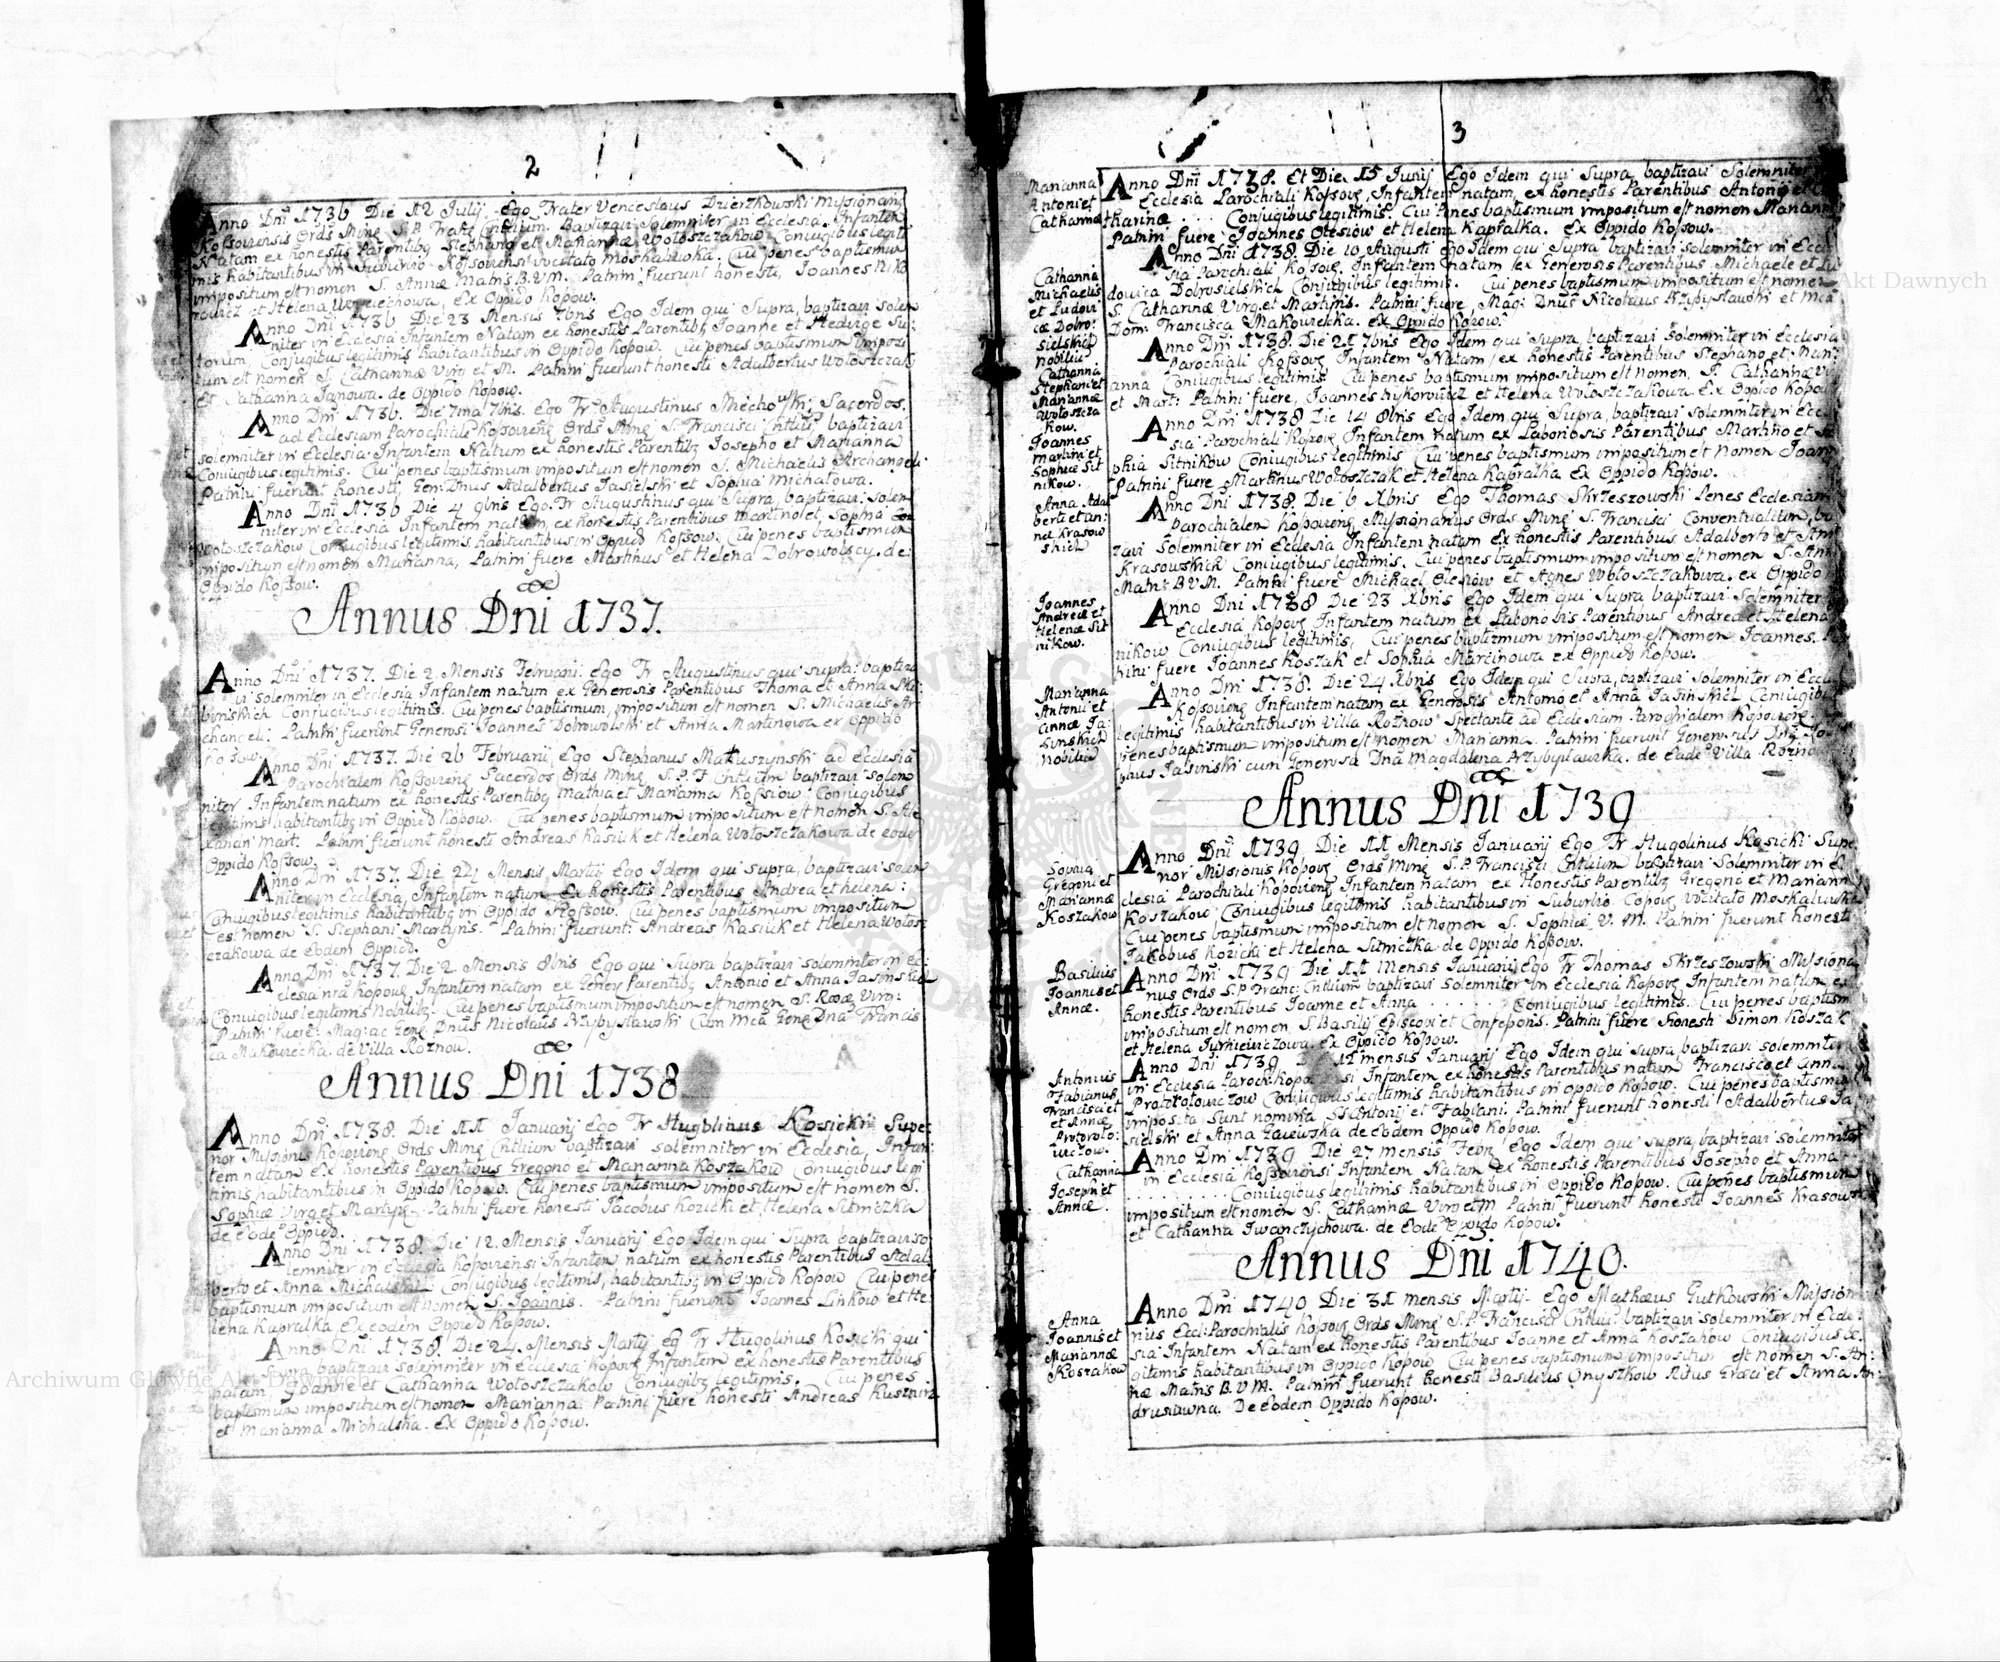 2
Anno Dni 1736 Die 12 Julij Ego Frater Venceslaus Dzierzkowski Missionari
Kossoviensis Ords Minę S.P. Franc: Cntlium. Baptizavi Solemniter in Ecclesia. Infantem
Natam ex honestis Parentibq Stephano et Marianna Wołoszczakow Conjugibus legiti
mis habitantibus in Suburbio Kossoviensi vocitato Moskalowka. Cui penes baptismum
impositum est nomen S. Annæ Matris B.V.M. Patrini fuerunt honesti, Joannes Niko
rowicz et Helena Woyciechowa, Ex Oppido Kossow.
Anno Dni 1736 Die 23 Mensis 7bris Ego Idem qui Supra, baptizavi solem
niter in Ecclesia Infantem Natam ex honestis Parentibq Joanne et Hedvige Su:
torum, Conjugibus legitimis habitantibus in Oppido Kossow. Cui penes baptismum imposi
tum est nomen S. Catharinæ Virg et M. Patrini fuerunt honesti Adalbertus Wołoszczak
Et Catharina Janowa. de Oppido Kossow.
Anno Dni 1736. Die 7ma 7bris. Ego Fr. Augustinus Miechowski, Sacerdos.
ad Ecclesiam Parochialē Kossovienę Ords Minę S. Francisci Cntliu, baptizavi
solemniter in Ecclesia Infantem Natum ex honestis Parentibq Josepho et Marianna
Conjugibus legitimis. Cui penes baptismum impositum est nomen S. Michaelis Archangeli
Patrini fuerunt honesti, Gen: Dnus Adalbertus Jasielski et Sophia Michałowa.
Anno Dni 1736 Die 4 9bris Ego Fr Augustinus qui Supra, baptizavi Solem
niter in Ecclesia Infantem natam, ex honestis Parentibus Martino et Sophia
Wołoszczakow Conjugibus legitimis habitantibus in Oppido Kossow. Cui penes baptismum
impositum est nomen Marianna, Patrini fuere Martinus et Helena Dobrowolscy. de
Oppido Kossow.
Annus Dni 1737.
Anno Dni 1737. Die 2. Mensis Februarii. Ego Fr Augustinus qui supra: baptiza
vi solemniter in Ecclesia Infantem natum ex Generosis Parentibus Thoma et Anna Ska:
binskich Conjugibus legitimis. Cui penes baptismum, impositum est nomen S. Michaelis Ar
changeli: Patrini fuerunt Generosi Joannes Dobrowolski et Anna Martinowa ex Oppido
Kossow.
Anno Dni 1737. Die 26 Februarii Ego Stephanus Makuszynski ad Ecclesia
Parochialem Kossovienę Sacerdos Ords Minę, S.P.F Cntlium baptizavi solem
niter Infantem natum ex honestis Parentibq Mathia et Marianna Kossiow: Conjugibus
legitimis habitantibq in Oppido Kossow. Cui penes baptismum impositum est nomen S. Ale
xandri Mart. Patrini fuerunt honesti Andreas Kasiuk et Helena Wołoszczakowa de eodē
Oppido Kossow.
Anno Dni 1737. Die 24 Mensis, Martij Ego Idem qui supra, baptizavi solem
niter in Ecclesia, Infantem natum ex honestis Parentibus Andrea et helena:
Coniugibus legitimis habitantibq in Oppido Kossow. Cui penes baptismum impositum
est nomen S. Stephani Martyris. Patrini fuerunt: Andreas Kasiuk et Helena Wołosz
czakowa de Eodem Oppido.
Anno Dni 1737. Die 2 Mensis 8bris Ego qui Supra baptizavi solemniter in Ec
clesia nra Kossovę, Infantem natam ex Generę Parentibq Antonio et Anna Jasinskich
Conjugibus legitimis Nobilibq. Cui penes baptismum impositum est nomen S. Rosæ Virg:
Patrini fuere: Mag: ac Gene Dnus Nicolaus Przybysławski Cum Mca Gene Dna Francis
ca Makowiecka. de Villa Roznow.
Annus Dni 1738
Anno Dni 1738. Die 11 Januarij Ego Fr Hugolinus Kosicki Supe
rior Missionis Kossovienę Ords Minę Cntlium baptizavi solemniter in Ecclesia, Infan:
tem natam Ex honestis Parentibus Gregorio et Marianna Koszakow Coniugibus legi
timis habitantibus in Oppido Kossow. Cui penes baptismum impositum est nomen S.
Sophiæ Virg et Martyrę. Patrini fuere honesti Jacobus Kozicki et Helena Sitniczka
de Eodē Oppido.
Anno Dni 1738. Die 12. Mensis Januarij Ego Idem qui Supra baptizavi so
lemniter in Ecclesia Kossoviensi Infantem natum ex honestis Parentibus Adal
berto et Anna Michalskich Conjugibus legitimis, habitantibq in Oppido Kossow Cui penes
baptismum impositum est nomen S. Joannis. Patrini fuerunt Joannes Linkow et He
lena Kapralka Ex eodem Oppido Kossow.
Anno Dni 1738. Die 24 Mensis Martij eg Fr Hugolinus Kosicki qui
supra baptizavi solemniter in Ecclesia Kossovę Infantem ex honestis Parentibus
natam Joanne et Catharina Wołoszczakow Coniugibq legitimis. Cui penes
baptismum impositum est nomen Marianna. Patrini fuere honesti Andreas Kusznirz
et Marianna Michalska. Ex Oppido Kossow.
3
Marianna
Antoni et
Catharinæ
Anno Dni 1738. Et Die 15 Junij Ego Idem qui Supra baptizavi Solemniter
Ecclesia Parochiali Kossovę, Infantem natam, ex honestis Parentibus Antonio et
tharinæ . . . Conjugibus legitimis. Cui penes baptismum impositum est nomen Mariann
Patrini fuere Joannes Olesiow et Helena Kapralka. ex Oppido Kossow.
Catharina
Michaelis
et Ludovi
cæ Dobro:
sielskich
nobiliū
Anno Dni 1738. Die 10 Augusti Ego Idem qui Supra baptizavi solemniter in Eccl
sia Parochiali Kossovę, Infantem natam ex Generosis Parentibus Michaele et Lu
dovica Dobrosielskich Conjugibus legitimis. Cui penes baptismum impositum est nomen
S. Catharinæ Virg et Martiris. Patrini fuere Mag: Dnus Nicolaus Przybysławski et Mca
Dom: Francisca Makowiecka. ex Oppido Kossow.
Catharina
Stephani et
Mariannæ
Wołoszcza
kow.
Anno Dni 1738. Die 21 7bris Ego Idem qui Supra, baptizavi solemniter in Ecclesia
Parochiali Kossovę Infantem Natam ex honestis Parentibus Stephano et Mari
anna Coniugibus legitimis Cui penes baptismum impositum est nomen, S. Catharinæ Vi
et Mart: Patrini fuere, Joannes Nykorowicz et Helena Wołoszczakowa Ex Oppido Kosso
Joannes
Martini et
Sophiæ Sit
nikow.
Anno Dni 1738 Die 14 8bris Ego Idem qui Supra, baptizavi solemniter in Eccl
sia Parochiali Kossovę Infantem Natum ex Laboriosis Parentibus Martino et So
phia Sitnikow Coniugibus legitimis Cui penes baptismum impositum est Nomen Joann
Patrini fuere Martinus Wołoszczak et Helena Kapralka Ex Oppido Kossow.
Anna Adal
berti et An:
næ Krasow
skich
Anno Dni 1738. Die 6 Xbris Ego Thomas Skrzeszowski Penes Ecclesiam
Parochialem Kossovienę Missionarius Ords Minę S. Francisci Conventualium, ba
zavi Solemniter in Ecclesia Infantem natam ex honestis Parentibus Adalberto et Ann
Krasowskich Coniugibus legitimis. Cui penes baptismum impositum est nomen S. Ann
Matris B.V.M. Patrini fuere Michael Olesiow et Agnes Wołoszczakowa. ex Oppido
Joannes
Andreæ et
Helenæ Sit
nikow.
Anno Dni 1738 Die 23 Xbris Ego Idem qui Supra baptizavi Solemniter
Ecclesia Kossovę Infantem natum ex Laboriosis Parentibus Andrea et Helena
nikow Coniugibus legitimis, Cui penes baptismum impositum est nomen Joannes.
trini fuere Joannes Koszak et Sophia Marcinowa ex Oppido Kossow.
Marianna
Antonii et
Annæ Ja:
sinskich
Nobiliū
Anno Dni 1738. Die 24 Xbris Ego Idem qui Supra, baptizavi Solemniter in Eccl
Kossovienę Infantem natam ex Generosis Antonio et Anna Jasinskich Coniugib
legitimis habitantibus in Villa Roznow Spectante ad Ecclesiam Parochialem Kossovienę
penes baptismum impositum est nomen Marianna. Patrini fuerunt Generosus
Jasinski cum Generosa Dna Magdalena Przybysławska. de Eadē Villa Roznow
Annus Dni 1739
Sophia
Gregorii et
Mariannæ
Koszakow
Anno Dni 1739. Die 11 Mensis Januarij Ego Fr. Hugolinus Kosicki Supe
rior Missionis Kossovę Ords Minę S.P. Francisci Cntlium baptizavi Solemniter in Ec
clesia Parochiali Kossovienę Infantem natam ex Honestis Parentibq Gregorio et Mariann
Koszakow Coniugibus legitimis habitantibus in Suburbio Cosovę vocitato Moskalowka
Cui penes baptismum impositum est nomen S. Sophiæ V. M. Patrini fuerunt honesti
Jacobus Kozicki et Helena Sitniczka de Oppido Kossow.
Basilius
Joannis et
Annæ.
Anno Dni 1739 Die 11 Mensis Januarij Ego Fr Thomas Skrzeszowski Missiona
rius Ords S.P Franc: Cntlium baptizavi Solemniter in Ecclesia Kossovę Infantem natum ex
honestis Parentibus Joanne et Anna . . . . . . Coniugibus legitimis. Cui penes baptism
impositum est nomen S. Basilij Episcopi et Confessoris. Patrini fuere honesti Simon Koszak
et Helena Jurkiewiczowa. ex Oppido Kossow.
Antonius
Fabianus
Francisci et
et Annæ
Protopo:
wiczow.
Anno Dni 1739 12 mensis Januarij Ego Idem qui supra, baptizavi solemniter
in Ecclesia Paroch: Infantem ex honestis Parentibus natum Francisco et Anna
Conjugibus legitimis habitantibus in Oppido Kossow. Cui penes baptismum
imposita sunt nomina SS Antonij et Fabiani. Patrini fuerunt honesti Adalbertus Ja
sielski et Anna Gaiewska de Eodem Oppido Kossow.
Catharina
Josephi et
Annæ.
Anno Dni 1739 Die 27 mensis Febrę Ego Idem qui supra, baptizavi solemniter
in Ecclesia Kossoviensi Infantem Natam ex honestis Parentibus Josepho et Anna
. . . . . . . . Coniugibus legitimis habitantibus in Oppido Kossow. Cui penes baptismum
impositum est nomen S. Catharinæ Virg et M Patrini fuerunt honesti Joannes Krasows
et Catharina Iwanczychowa. de Eodē Oppido Kossow.
Annus Dni 1740.
Anna
Joannis et
Mariannæ
Koszakow
Anno Dni 1740 Die 31 mensis Martij. Ego Mathæus Gutkowski Mission
rius Eccl: Parochialis Kossovę Ords Minę S.P. Francisci Cntliu: baptizavi solemniter in Eccle
sia Infantem Natam ex honestis Parentibus Joanne et Anna Koszakow Coniugibus le:
gitimis habitantibus in Oppido Kossow Cui penes baptismum impositum est nomen S. An:
næ Matris B.V.M. Patrini fuerunt honesti Basilius Onyszkow Ritus Græci et Anna An:
drusiawna. De Eodem Oppido Kossow.
Archiwum Główne Akt Dawnych
Akt Dawnych